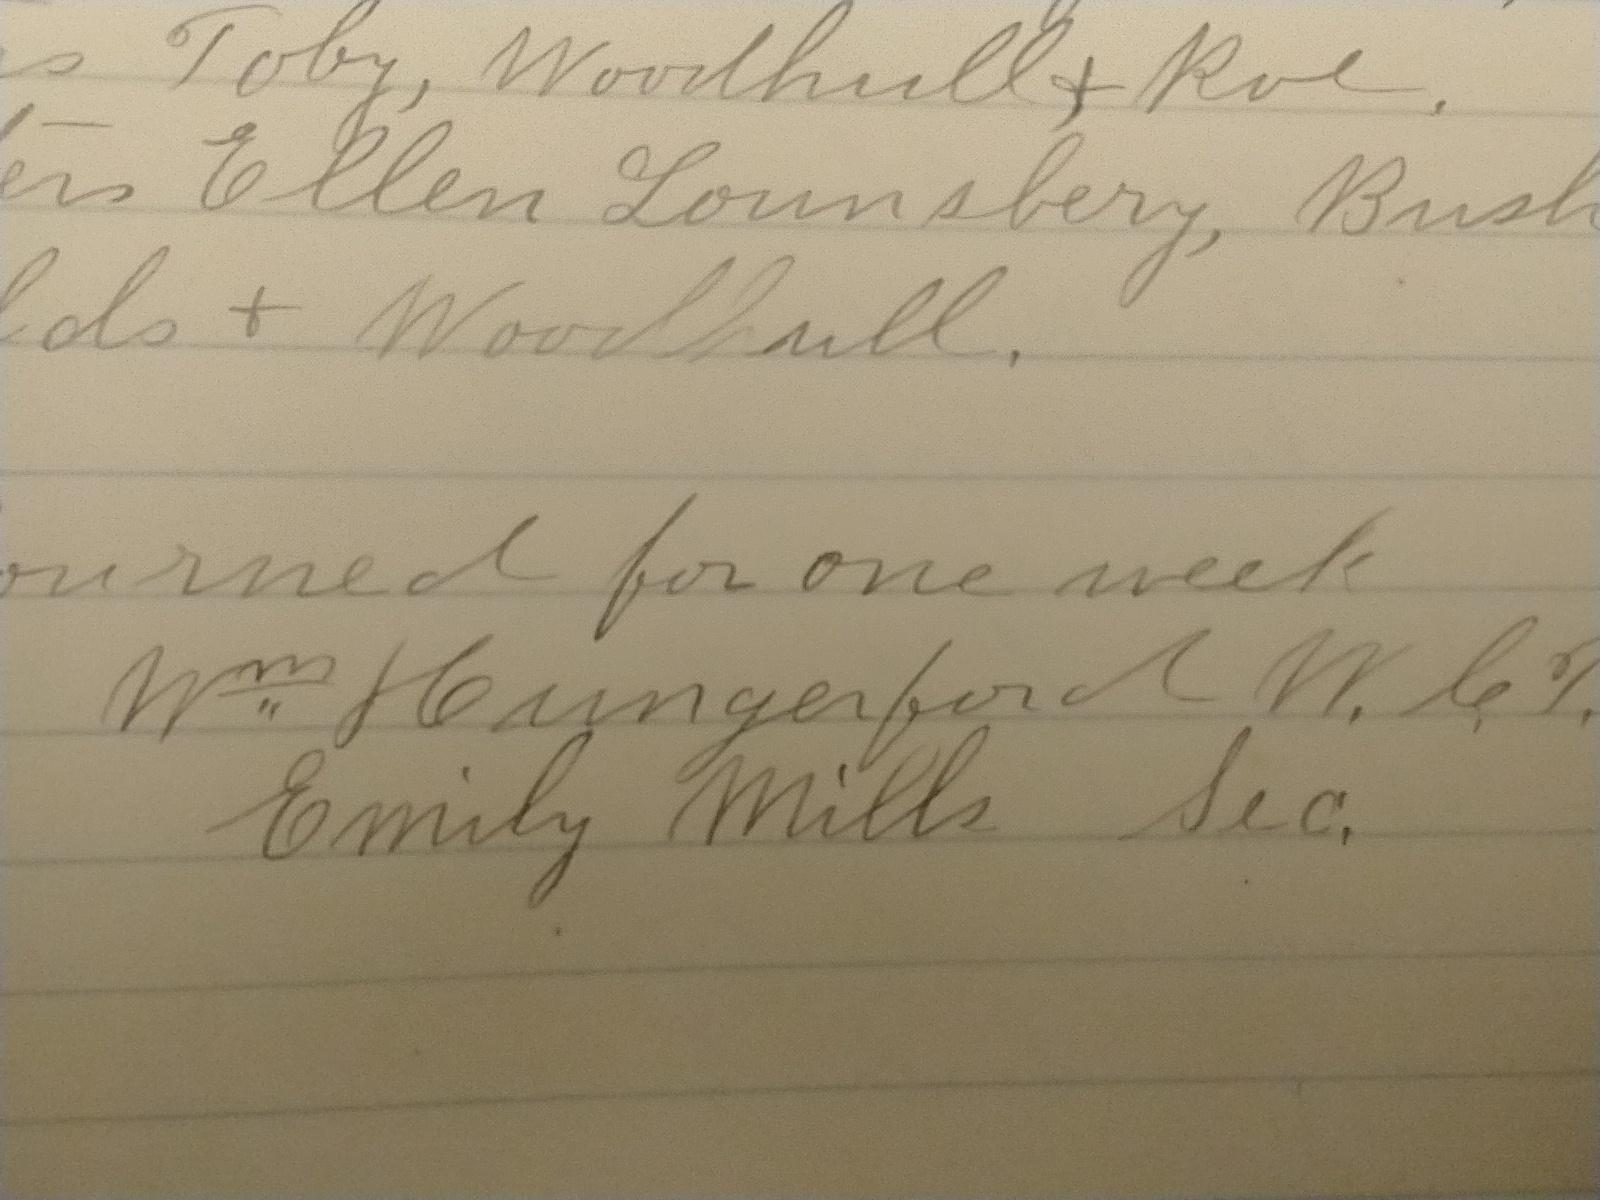 s Toby, Woodhull + Roe.
ers Ellen Lounsbery, Bush
lds + Woodhull.
ourned for one week
Wm Hungerford W. C. T.
Emily Mills Sec.